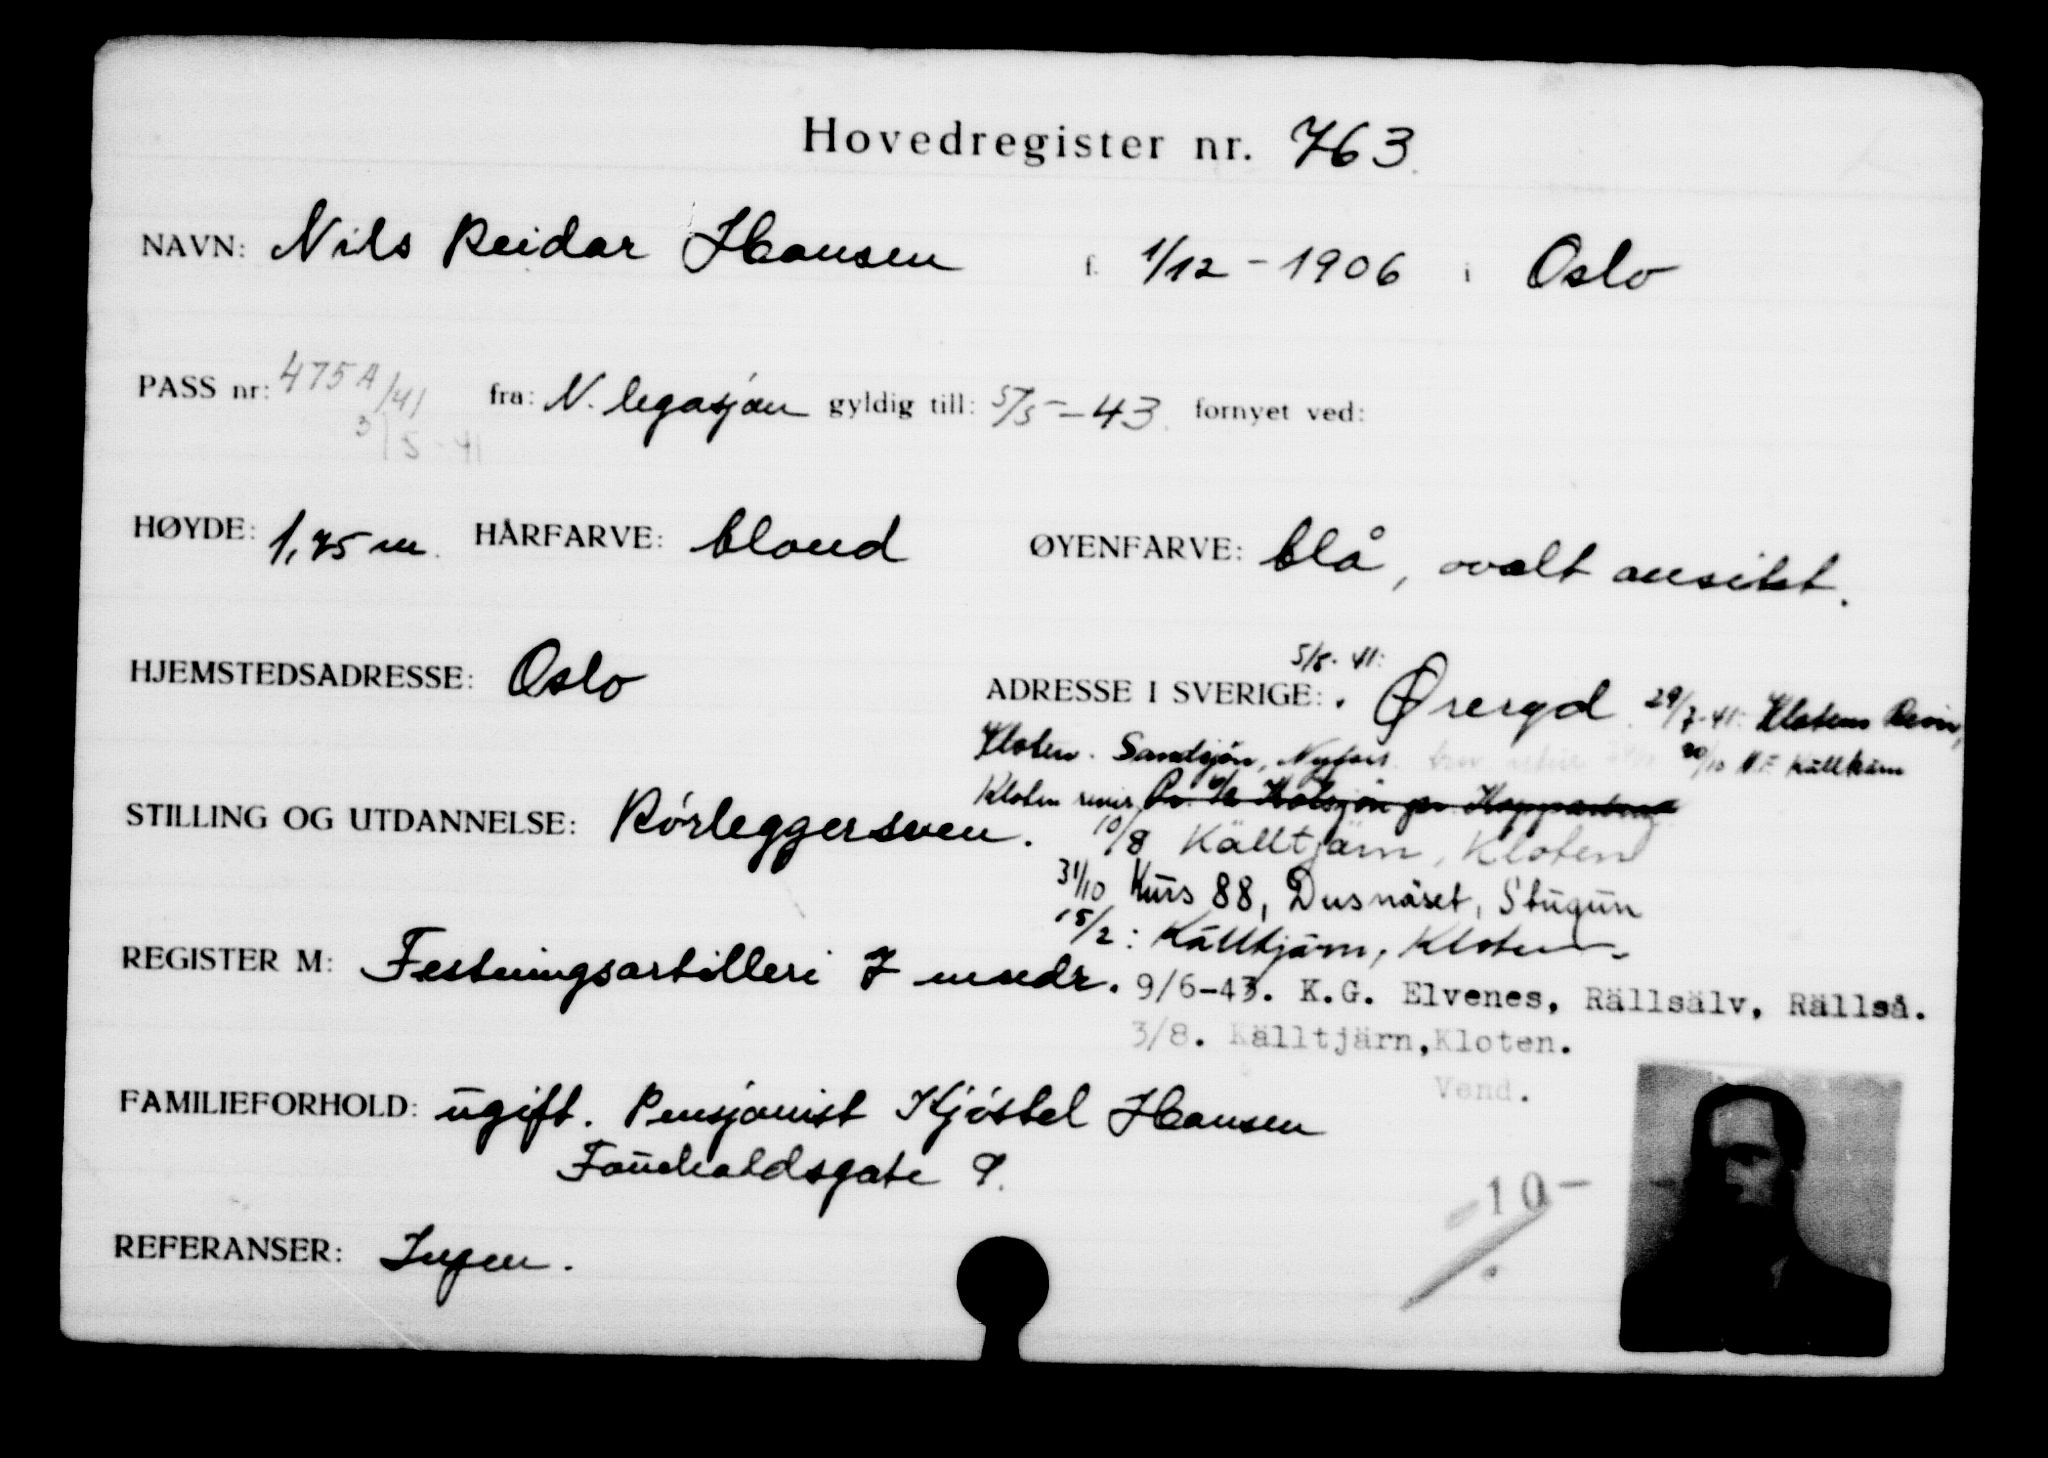 Hovedregister nr. 763.
NAVN: Nils Reidar Hansen f. 1/12 - 1906 i Oslo
PASS nr: 475A/41 fra: N. legasjon gyldig till: 5/5 - 43. fornyet ved:
3/5 - 41
HØYDE: 1,75 m. HÅRFARVE: blond ØYENFARVE: blå, ovalt ansikt.
HJEMSTEDSADRESSE: Oslo
5/8. 41:
ADRESSE I SVERIGE: Øreryd. 29/7-41: Klotens Revir,
Kloten. Sandsjön, Nyfors. 20/10 Källtjärn
Kloten revir, Kolsjön pr. Kopparberg
STILLING OG UTDANNELSE: Rørleggersven.
10/8 Källtjärn, Kloten
31/10 Kurs 88, Dusnäset, Stugun
15/2: Källtjärn, Kloten.
REGISTER M: Festningsartilleri 7 mndr.
9/6-43. K.G. Elvenes, Rällsälv, Rällså.
3/8. Källtjärn,Kloten.
Vend.
FAMILIEFORHOLD: ugift. Pensjonist Kjøstel Hansen
Fauchaldsgate 9.
-10-
REFERANSER: Ingen.